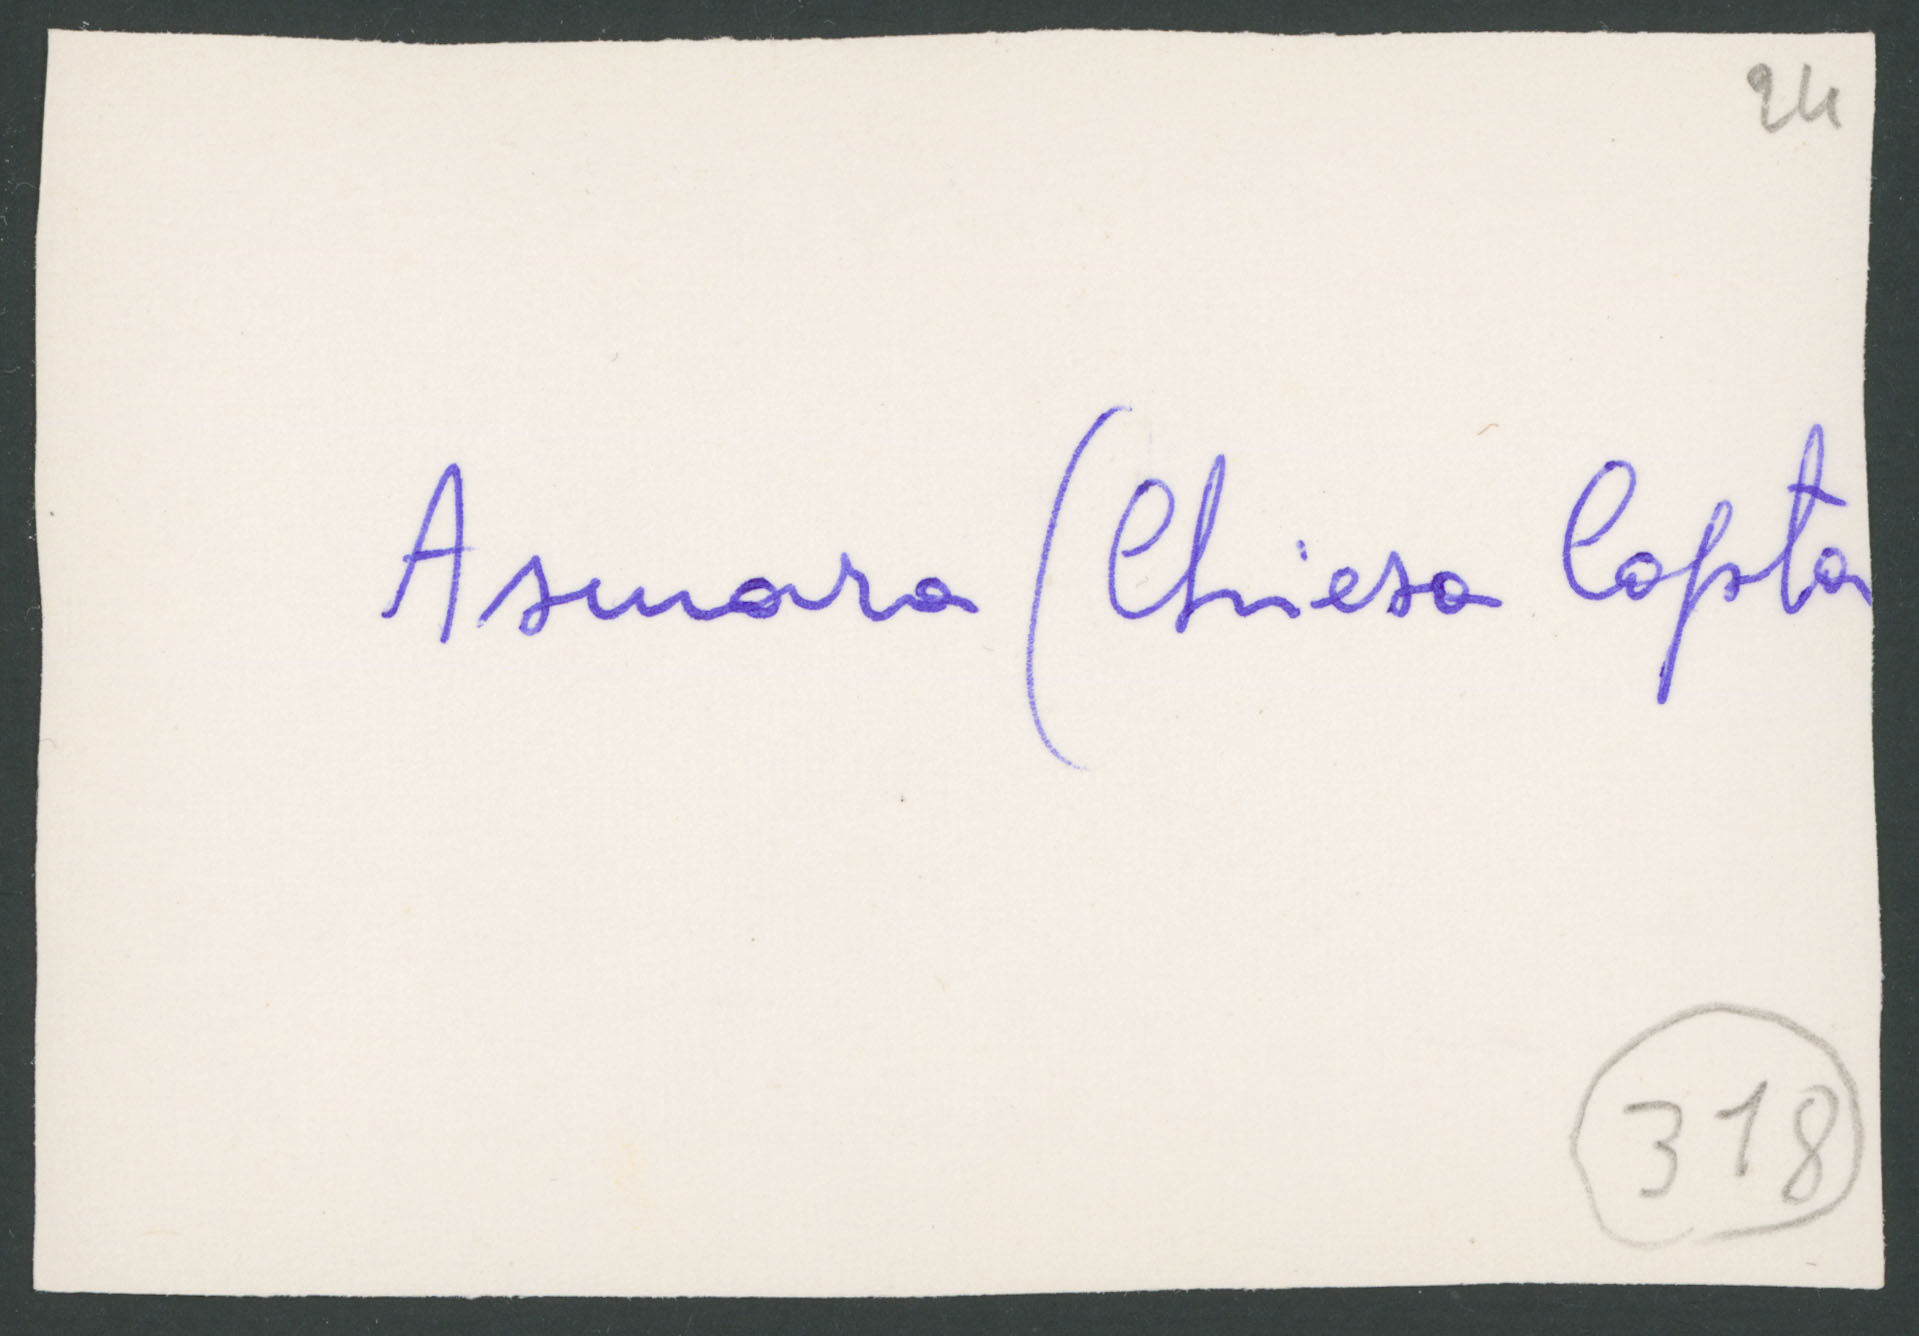 24
Asmara (Chiesa Copta
318